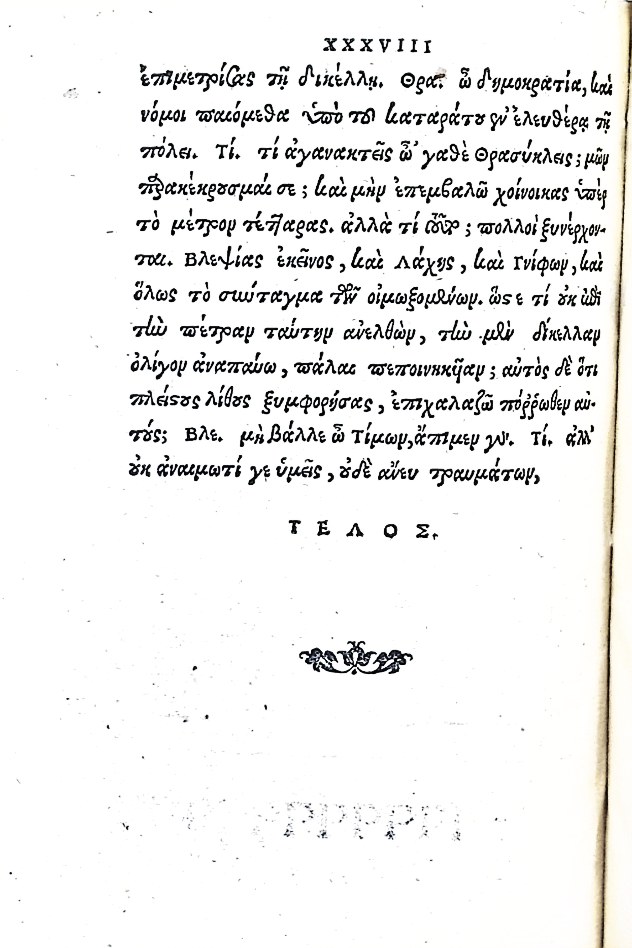 XXXVIII
ἐπιμετρίσας τῇ δικέλλῃ. Θρα. ὦ δημοκρατία, καὶ
νόμοι παιόμεθα ὑπὸ τοῦ καταράτου ἐν ἐλευθέρᾳ τῇ
πόλει. Τί. τί ἀγανακτεῖς ὦ ᾽γαθὲ Θρασύκλεις; μῶν
παρακέκρουσμαί σε; καὶ μὴν ἐπεμβαλῶ χοίνικας ὑπὲρ
τὸ μέτρον τέτταρας. ἀλλὰ τί τοῦτο; πολλοὶ ξυνέρχον-
ται. Βλεψίας ἐκεῖνος, καὶ Λάχης, καὶ Γνίφων, καὶ
ὅλως τὸ σύνταγμα τῶν οἰμωξομένων. ὥστε τί οὐκ ἐπὶ
τὴν πέτραν ταύτην ἀνελθὼν, τὴν μὲν δίκελλαν
ὀλίγον ἀναπαύω, πάλαι πεπονηκυῖαν; αὐτὸς δὲ ὅτι
πλείστους λίθους ξυμφορήσας, ἐπιχαλαζῶ πόῤῥωθεν αὐ-
τούς; Βλε. μὴ βάλλε ὦ Τίμων, ἄπιμεν γάρ. Τί. ἀλλ'
οὐκ ἀναιμωτί γε ὑμεῖς, οὐδὲ ἄνευ τραυμάτων,
ΤΕΛΟΣ.